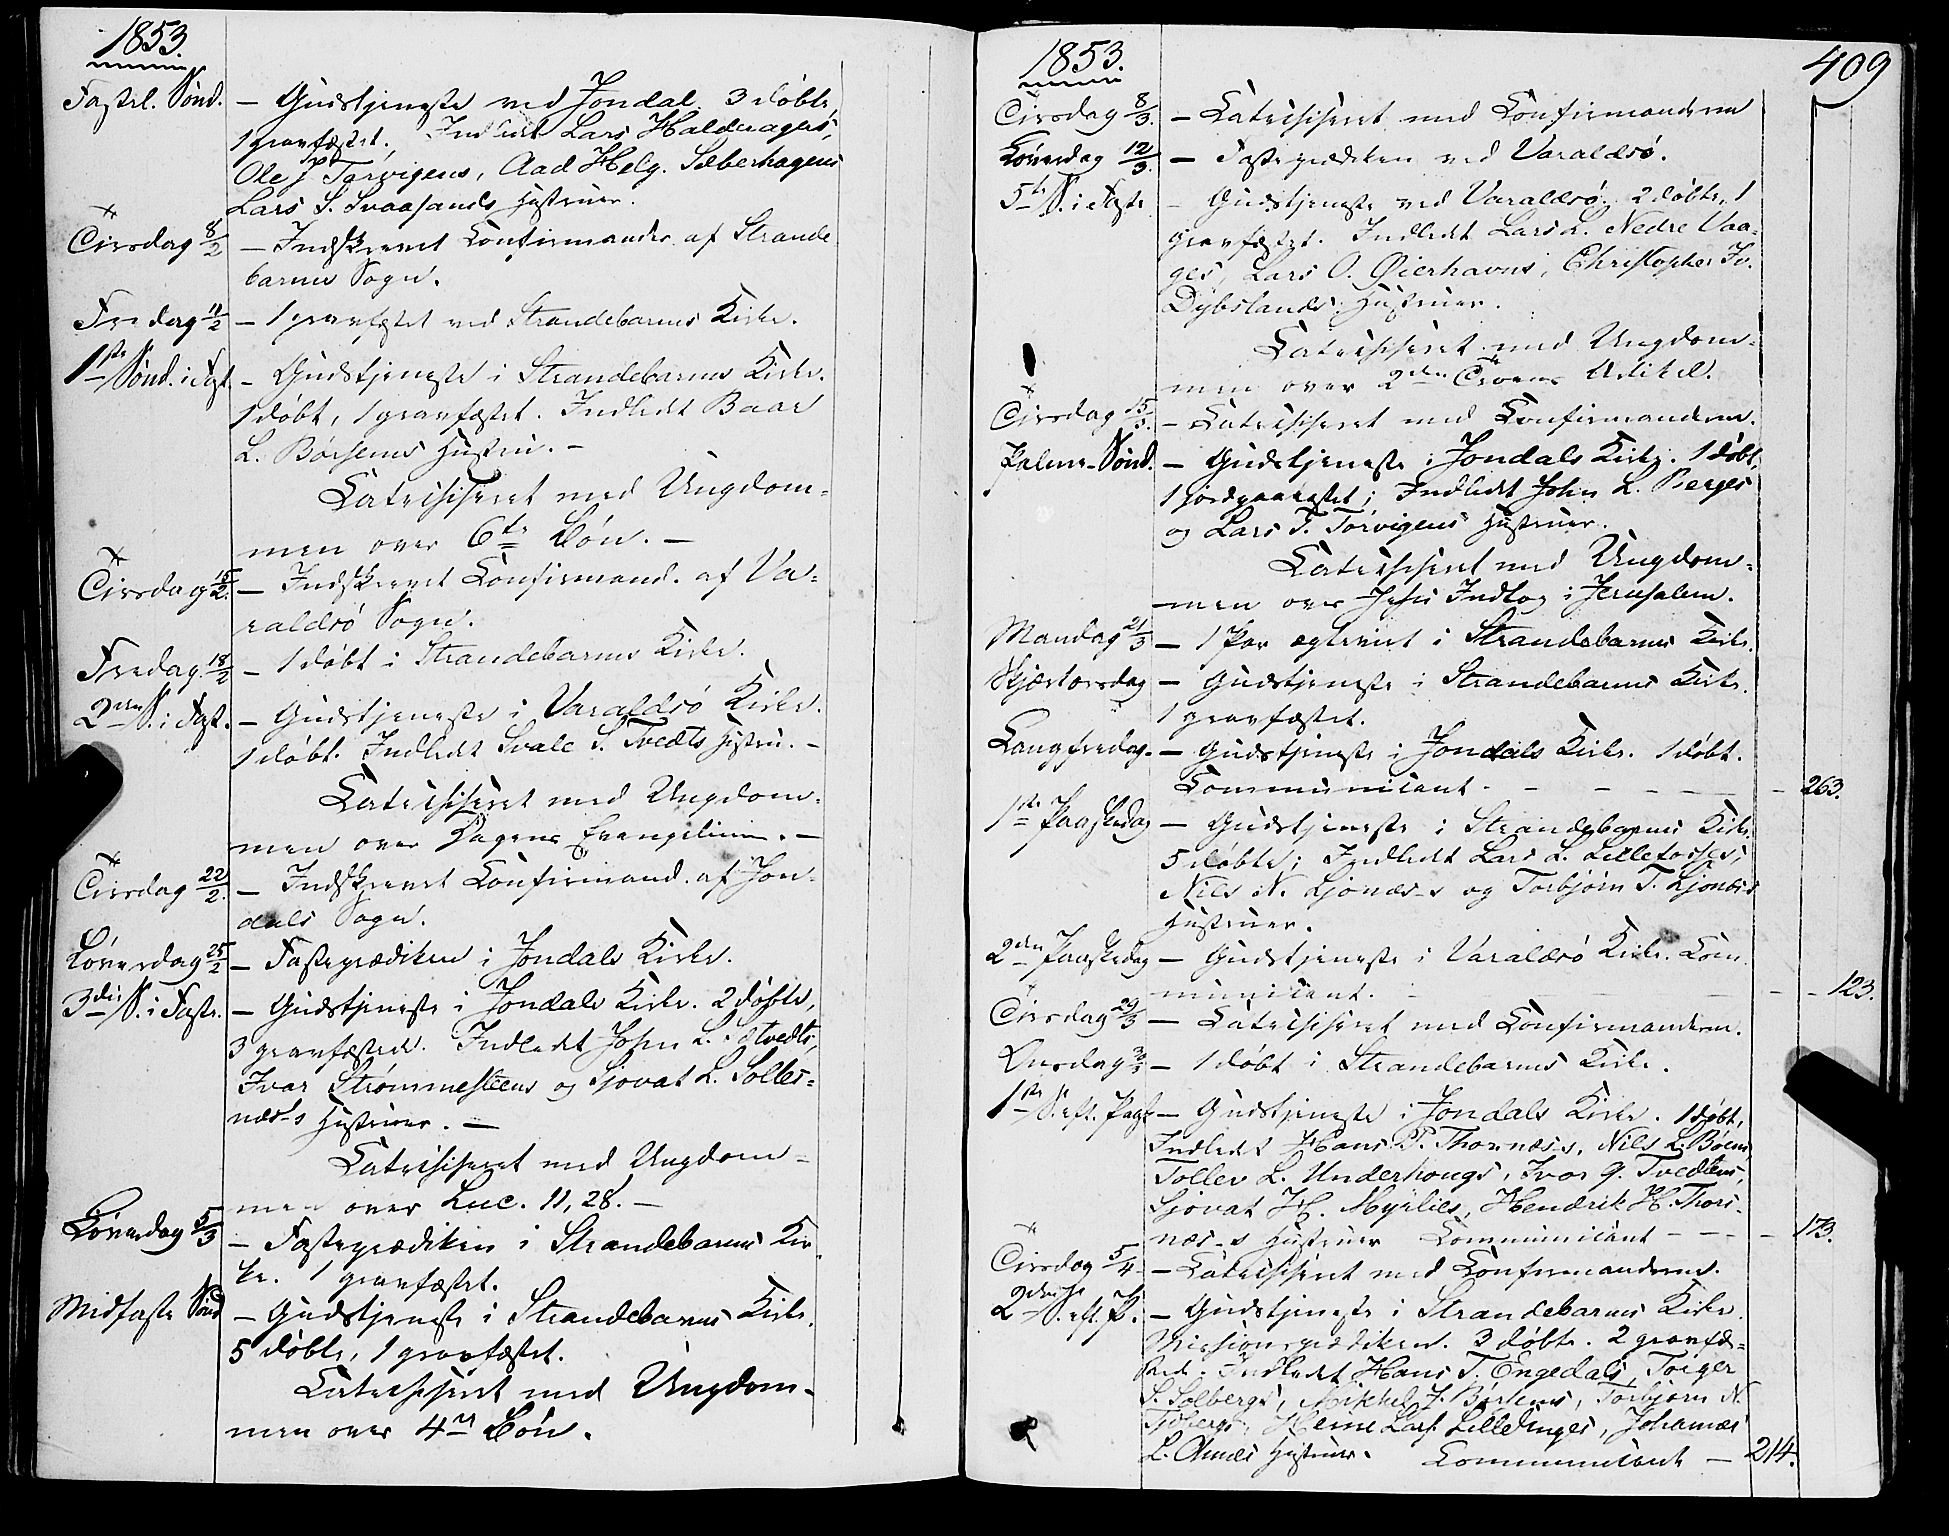 1853.
Fastel. Sønd. – Gudstjeneste ved Jondal. 3 døbte,
1 gravfæstet. Indledt Lars Halderagers,
Ole J. Tørvigens, Aad Helg. Sæberhagens
Lars S. Svaasands Hustruer.
Tirsdag 8/2 – Indskrevet Confirmander af Strande
barms Sogn.
Fredag 11/2 – 1 gravfæstet ved Strandebarms Kirke.
1ste Sønd. i Fast. – Gudstjeneste i Strandebarms Kirke.
1 døbt, 1 gravfæstet. Indledt Baar
L. Børsems Hustru. –
Catechiseret med Ungdom-
men over 6te Bøn. –
Tirsdag 15/2. – Indskrevet Confirmand. af Va-
raldsø Sogn.
Fredag 18/2 – 1 døbt i Strandebarms Kirke.
2den S. i Fast. – Gudstjeneste i Varaldsø Kirke.
1 døbt. Indledt Svale S. Tvedts Hustru. –
Catechiseret med Ungdom-
men over Dagens Evangelium. –
Tirsdag 22/2. – Indskrevet Confirmand. af Jon-
dals Sogn.
Løverdag 25/2 – Fasteprædiken i Jondals Kirke.
3die S. i Faste. – Gudstjeneste i Jondals Kirke. 2 døbte,
3 gravfæstede. Indledt John L. Tvedts,
Ivar Strømmesteens og Sjovat L. Solles-
næs-s Hustruer. –
Catechiseret med Ungdom-
men over Luc. 11, 28. –
Løverdag 5/3 – Fasteprædiken i Strandebarms Kir-
ke. 1 gravfæstet.
Midfaste Sønd – Gudstjeneste i Strandebarms Kirke.
5 døbte, 1 gravfæstet.
Catechiseret med Ungdom-
men over 4de Bøn.
409
1853.
Tirsdag 8/3. – Catechiseret med Confirmanderne
Løverdag 12/3. – Fasteprædiken ved Varaldsø.
5te S. i Faste – Gudstjeneste ved Varaldsø. 2 døbte, 1
gravfæstet. Indledt Lars L. Nedre Vaa-
ges, Lars O. Øierhavns, Christopher Iv.
Dybslands Hustruer.
Catechiseret med Ungdom-
men over 2den Troens Artikel.
Tirsdag 15/3. – Catechiseret med Confirmanderne.
Palme-Sønd. – Gudstjeneste i Jondals Kirke. 1 døbt,
1 jordpaakastet; Indledt John L. Berges
og Lars T. Tørvigens Hustruer.
Catechiseret med Ungdom-
men over Jesu Indtog i Jerusalem.
Mandag 21/3 – 1 Par ægteviet i Strandebarms Kirke.
Skjærtorsdag – Gudstjeneste i Strandebarms Kirke.
1 gravfæstet.
Langfredag. – Gudstjeneste i Jondals Kirke. 1 døbt.
Communicant. – – – – – 263.
1ste Paaskedag – Gudstjeneste i Strandebarms Kirke.
5 døbte; Indledt Lars L. Lilletosses,
Nils N. Ljonæs-s og Torbjørn T. Ljonæs-s
Hustruer.
2den Paaskedag – Gudstjeneste i Varaldsø Kirke. Com
municant. – – – 123.
Tirsdag 29/3 – Catechiseret med Confirmanderne.
Onsdag 30/3 – 1 døbt i Strandebarms Kirke.
1ste S. eft. Paaske – Gudstjeneste i Jondals Kirke. 1 døbt,
Indledt Hans P. Thornæs-s, Nils L. Bøens,
Tollev L. Underhougs, Ivar G. Tvedtens,
Sjovat H. Myrlies, Hendrik H. Thors-
næs-s Hustruer Communicant – – – 173.
Tirsdag 5/4 – Catechiseret med Confirmanderne.
2den S. eft. P. – Gudstjeneste i Strandebarms Kirke.
Missionsprædiken. 3 døbte. 2 gravfæ-
stede. Indledt Hans T. Engedals, Torger
S. Solbergs, Mikkel J. Børsems, Torbjørn N.
Heine Lars. Lilletinges, Johannes
L. Hustruer. Communicant – 214.